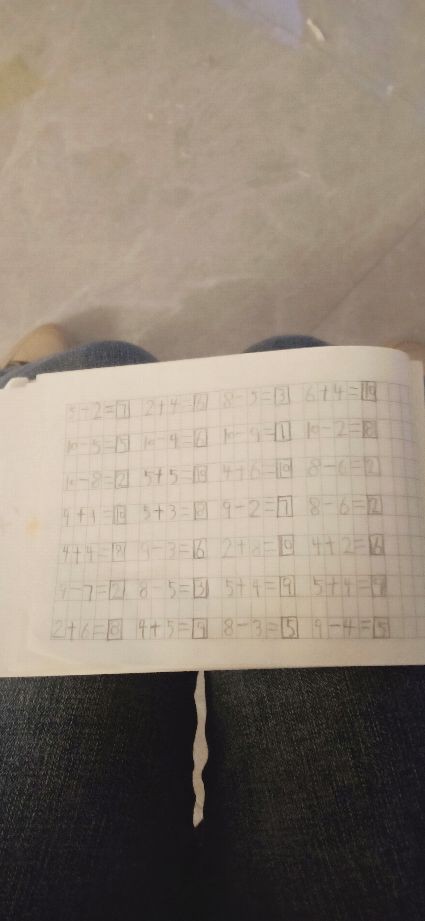 5+2=7 2+4=6 8-5=3 6+4=10
10-5=5 10-4=6 10-9=1 10-2=8
10-8=2 5+5=10 4+6=10 8-6=2
9+1=10 5+3=8 9-2=7 8-6=2
4+4=8 9-3=6 2+8=10 4+2=6
9-7=2 8-5=3 5+4=9 5+4=9
2+6=8 4+5=9 8-3=5 9-4=5